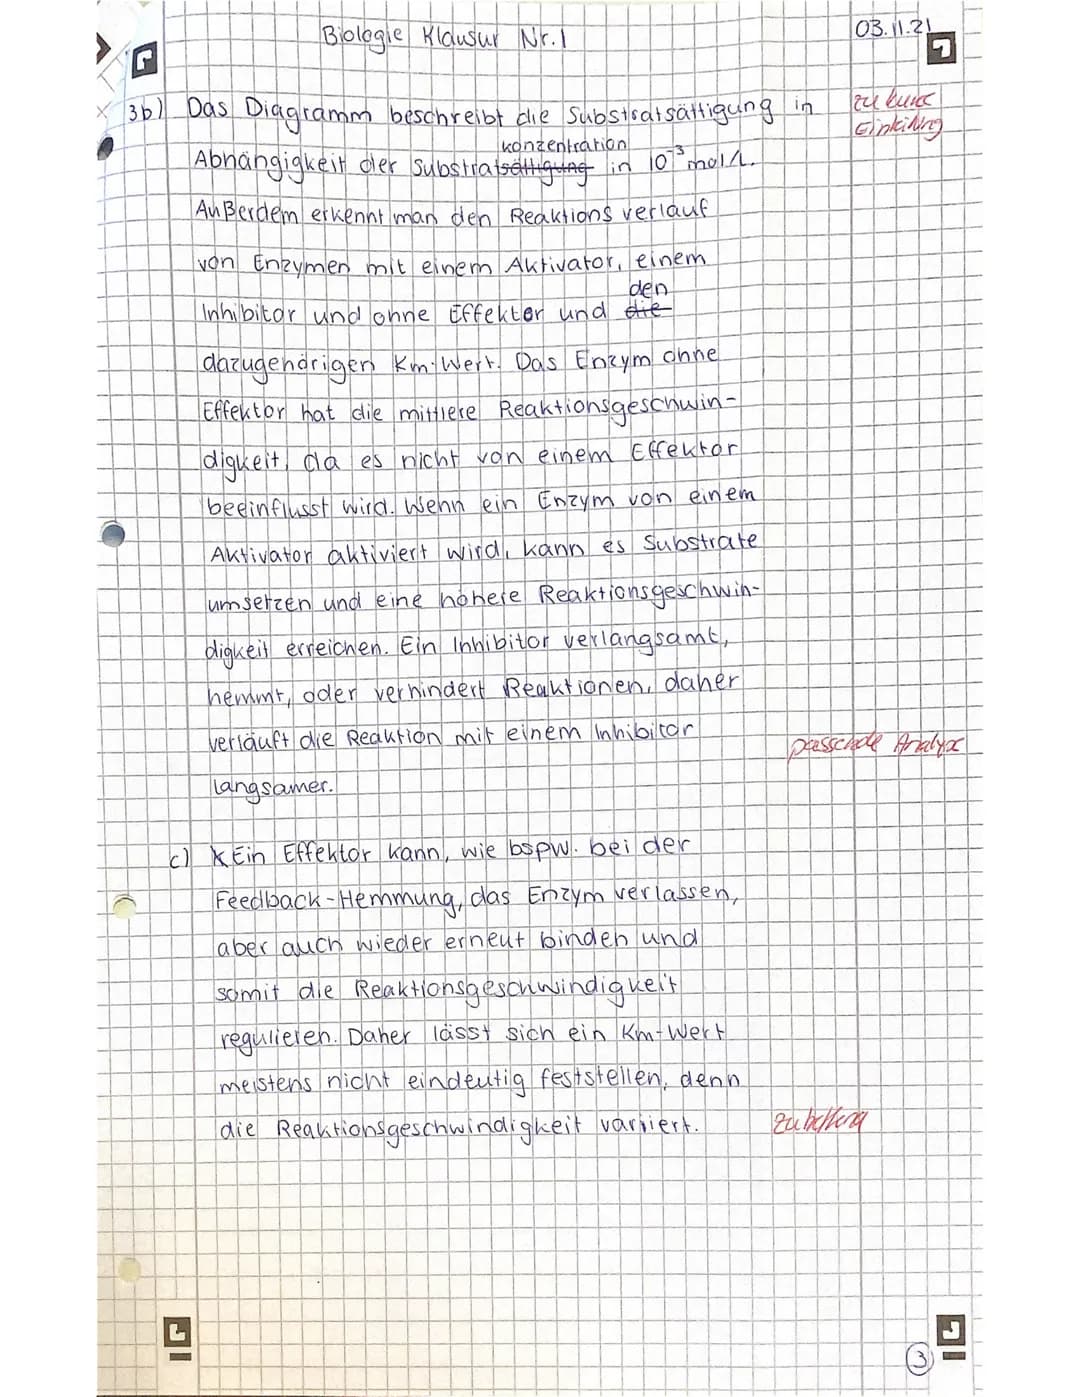 Biologie Klausur Nr.1
03.11.21
3b) Das Diagramm beschreibt die Substratsättigung in
zu kurze
Einleitung
konzentration
Abhängigkeit der Substratsättigung in 10⁻³ mol/L.
Außerdem erkennt man den Reaktionsverlauf
von Enzymen mit einem Aktivator, einem
den
Inhibitor und ohne Effektor und die
dazugehörigen Km-Wert. Das Enzym ohne
Effektor hat die mittlere Reaktionsgeschwin-
digkeit, da es nicht von einem Effektor
beeinflusst wird. Wenn ein Enzym von einem
Aktivator aktiviert wird, kann es Substrate
umsetzen und eine höhere Reaktionsgeschwin-
digkeit erreichen. Ein Inhibitor verlangsamt,
hemmt, oder verhindert Reaktionen, daher
verläuft die Reaktion mit einem Inhibitor
passende Analyse
langsamer.
c) Ein Effektor kann, wie bspw. bei der
Feedback-Hemmung, das Enzym verlassen,
aber auch wieder erneut binden und
somit die Reaktionsgeschwindigkeit
regulieren. Daher lässt sich ein Km-Wert
meistens nicht eindeutig feststellen, denn
die Reaktionsgeschwindigkeit variiert.
3